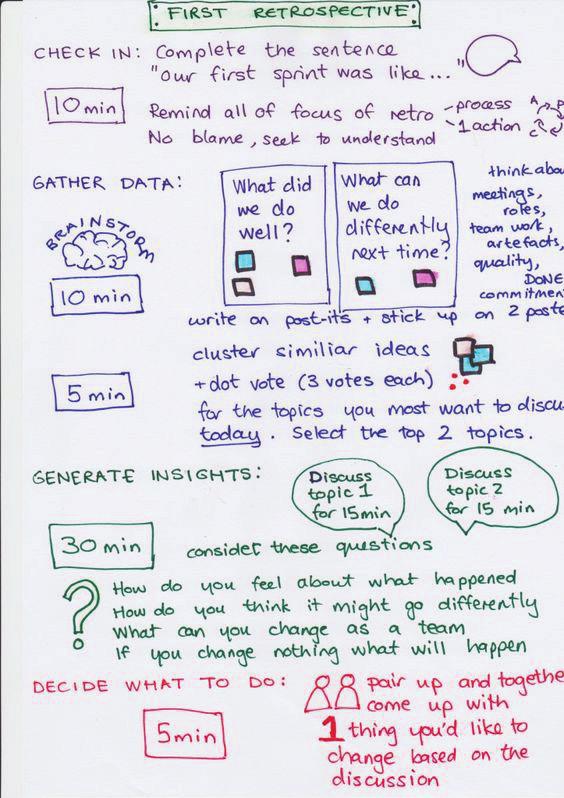 FIRST RETROSPECTIVE
CHECK IN: Complete the sentence
"Our first sprint was like...
"
10 min
Remind all of focus of retro - process
- 1 action
No blame, seek to understand
A
P
C
GATHER DATA:
BRAINSTORM
10 min
What did
we do
well?
What can
we do
differently
next time?
think abou
meetings,
roles,
team work,
artefacts,
quality,
DONE
commitmen
write on post-its + stick up on 2 poste
cluster similiar ideas
5 min
+ dot vote (3 votes each)
for the topics you most want to discu
today. Select the top 2 topics.
GENERATE INSIGHTS:
Discuss
topic 1
for 15min
Discuss
topic 2
for 15 min
30 min
consider these questions
?
How do you feel about what happened
How do you think it might go differently
What can you change as a team
If you change nothing what will happen
DECIDE WHAT TO DO:
5min
pair up and togethe
come up with
1 thing you'd like to
change based on the
discussion